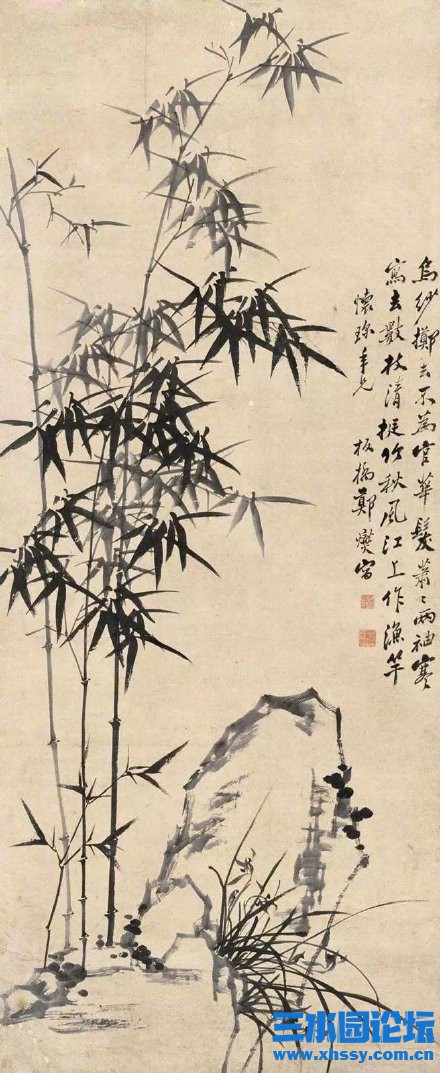 烏紗擲去不為官華髮蕭々兩袖寒
寫去數枝清挺竹秋風江上作漁竿
懷珍年兄
板橋鄭燮寫
三水园论坛
www.xhssy.com